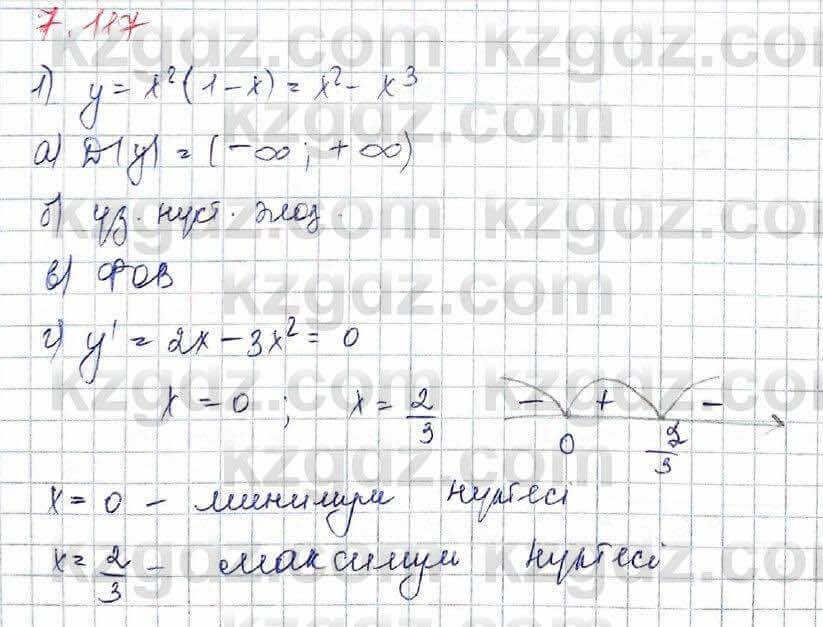 7.117
1) y = x²(1-x) = x² - x³
а) D(y) = (-∞; +∞)
б) үз. нүкт.
в) ФОВ
г) y' = 2x - 3x² = 0
x = 0 ; x = 2/3
- + -
0 2/3
x = 0 - минимум нүктесі
x = 2/3 - максимум нүктесі
kzgdz.com